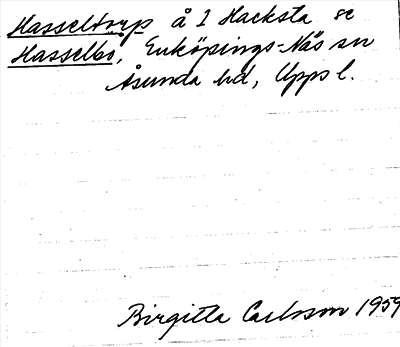 Hasseltorp å 1 Hacksta se
Hasselbo, Enköpings-Näs sn
Åsunda hd, Upps l.
Birgitta Carlsson 1959